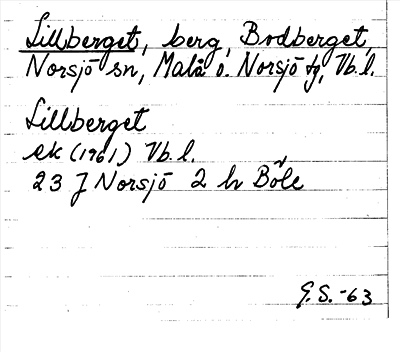 Lillberget, berg, Bodberget,
Norsjö sn, Malå o. Norsjö tg, Vb.l.
Lillberget
ek (1961) Vb.l.
23 J Norsjö 2 h Böle
G.S.-63